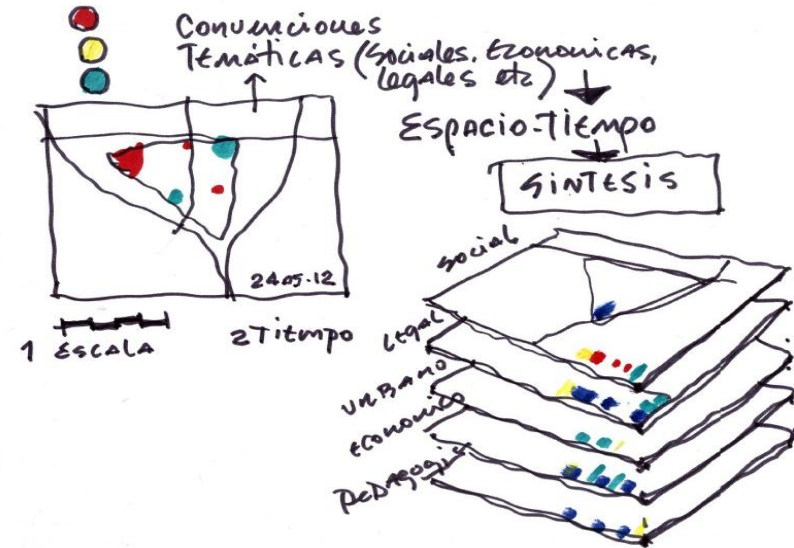 Convenciones
Temáticas (sociales, Economicas,
legales etc)
ESPACIO-TIEMPO
SÍNTESIS
24.05.12
1 ESCALA
2 Tiempo
social
legal
URBANO
economico